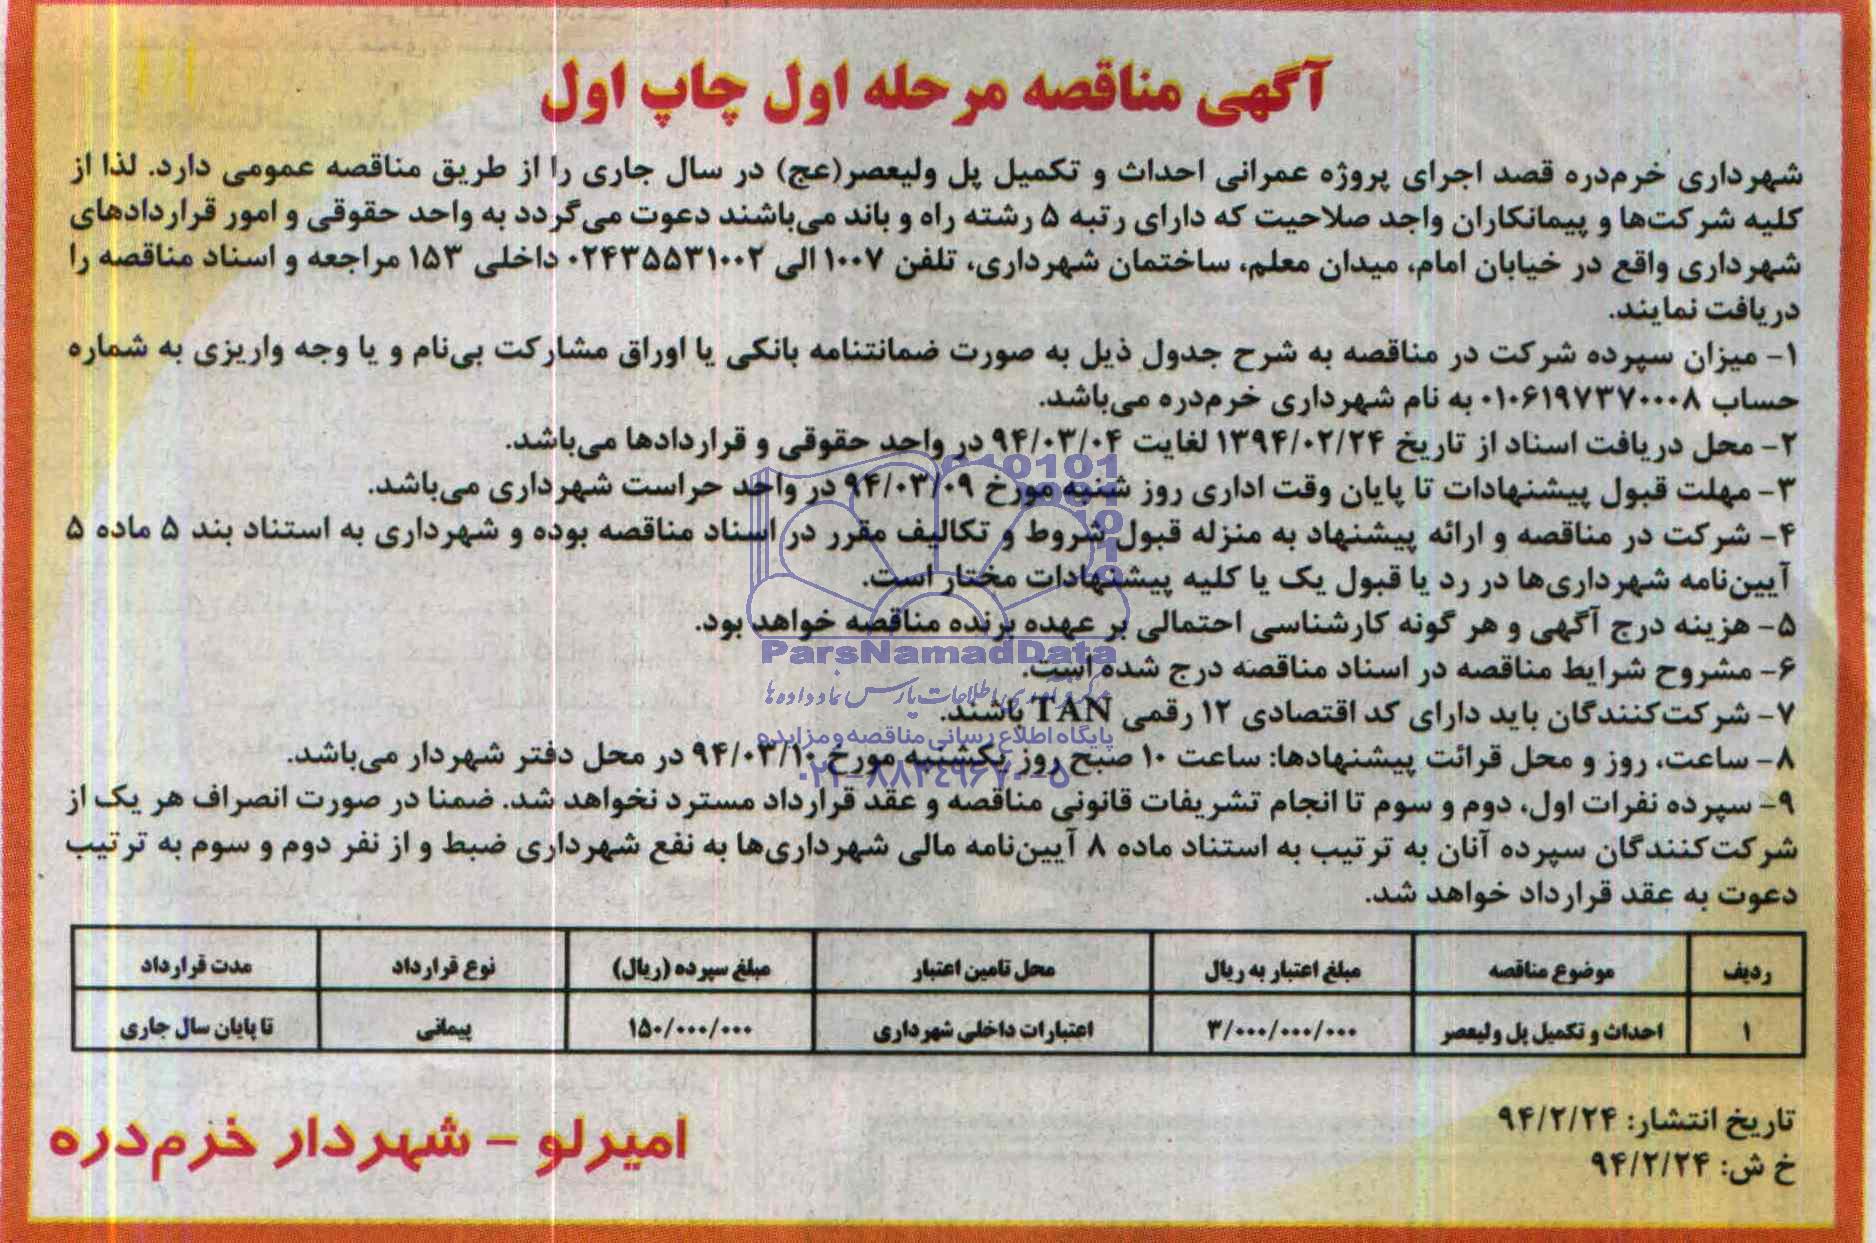 آگهی مناقصه مرحله اول چاپ اول
شهرداری خرم‌دره قصد اجرای پروژه عمرانی احداث و تکمیل پل ولیعصر(عج) در سال جاری را از طریق مناقصه عمومی دارد. لذا از
کلیه شرکت‌ها و پیمانکاران واجد صلاحیت که دارای رتبه ۵ رشته راه و باند می‌باشند دعوت می‌گردد به واحد حقوقی و امور قراردادهای
شهرداری واقع در خیابان امام، میدان معلم، ساختمان شهرداری، تلفن ۱۰۰۷ الی ۰۲۴۳۵۵۳۱۰۰۲ داخلی ۱۵۳ مراجعه و اسناد مناقصه را
دریافت نمایند.
۱- میزان سپرده شرکت در مناقصه به شرح جدول ذیل به صورت ضمانتنامه بانکی یا اوراق مشارکت بی‌نام و یا وجه واریزی به شماره
حساب ۰۱۰۶۱۹۷۳۷۰۰۰۸ به نام شهرداری خرم‌دره می‌باشد.
۲- محل دریافت اسناد از تاریخ ۱۳۹۴/۰۲/۲۴ لغایت ۹۴/۰۳/۰۴ در واحد حقوقی و قراردادها می‌باشد.
۳- مهلت قبول پیشنهادات تا پایان وقت اداری روز شنبه مورخ ۹۴/۰۳/۰۹ در واحد حراست شهرداری می‌باشد.
۴- شرکت در مناقصه و ارائه پیشنهاد به منزله قبول شروط و تکالیف مقرر در اسناد مناقصه بوده و شهرداری به استناد بند ۵ ماده ۵
آیین‌نامه شهرداری‌ها در رد یا قبول یک یا کلیه پیشنهادات مختار است.
۵- هزینه درج آگهی و هر گونه کارشناسی احتمالی بر عهده برنده مناقصه خواهد بود.
ParsNamadData
۶- مشروح شرایط مناقصه در اسناد مناقصه درج شده است.
مرکز فرآوری اطلاعات پارس نماد داده ها
۷- شرکت‌کنندگان باید دارای کد اقتصادی ۱۲ رقمی TAN باشند.
پایگاه اطلاع رسانی مناقصه و مزایده
۸- ساعت، روز و محل قرائت پیشنهادها: ساعت ۱۰ صبح روز یکشنبه مورخ ۹۴/۰۳/۱۰ در محل دفتر شهردار می‌باشد.
۰۲۱-۸۸۳۴۹۶۷۰-۵
۹- سپرده نفرات اول، دوم و سوم تا انجام تشریفات قانونی مناقصه و عقد قرارداد مسترد نخواهد شد. ضمنا در صورت انصراف هر یک از
شرکت‌کنندگان سپرده آنان به ترتیب به استناد ماده ۸ آیین‌نامه مالی شهرداری‌ها به نفع شهرداری ضبط و از نفر دوم و سوم به ترتیب
دعوت به عقد قرارداد خواهد شد.
ردیف موضوع مناقصه مبلغ اعتبار به ریال محل تامین اعتبار مبلغ سپرده (ریال) نوع قرارداد مدت قرارداد
۱ احداث و تکمیل پل ولیعصر ۳/۰۰۰/۰۰۰/۰۰۰ اعتبارات داخلی شهرداری ۱۵۰/۰۰۰/۰۰۰ پیمانی تا پایان سال جاری
تاریخ انتشار: ۹۴/۲/۲۴
خ ش: ۹۴/۲/۲۴
امیرلو - شهردار خرم‌دره